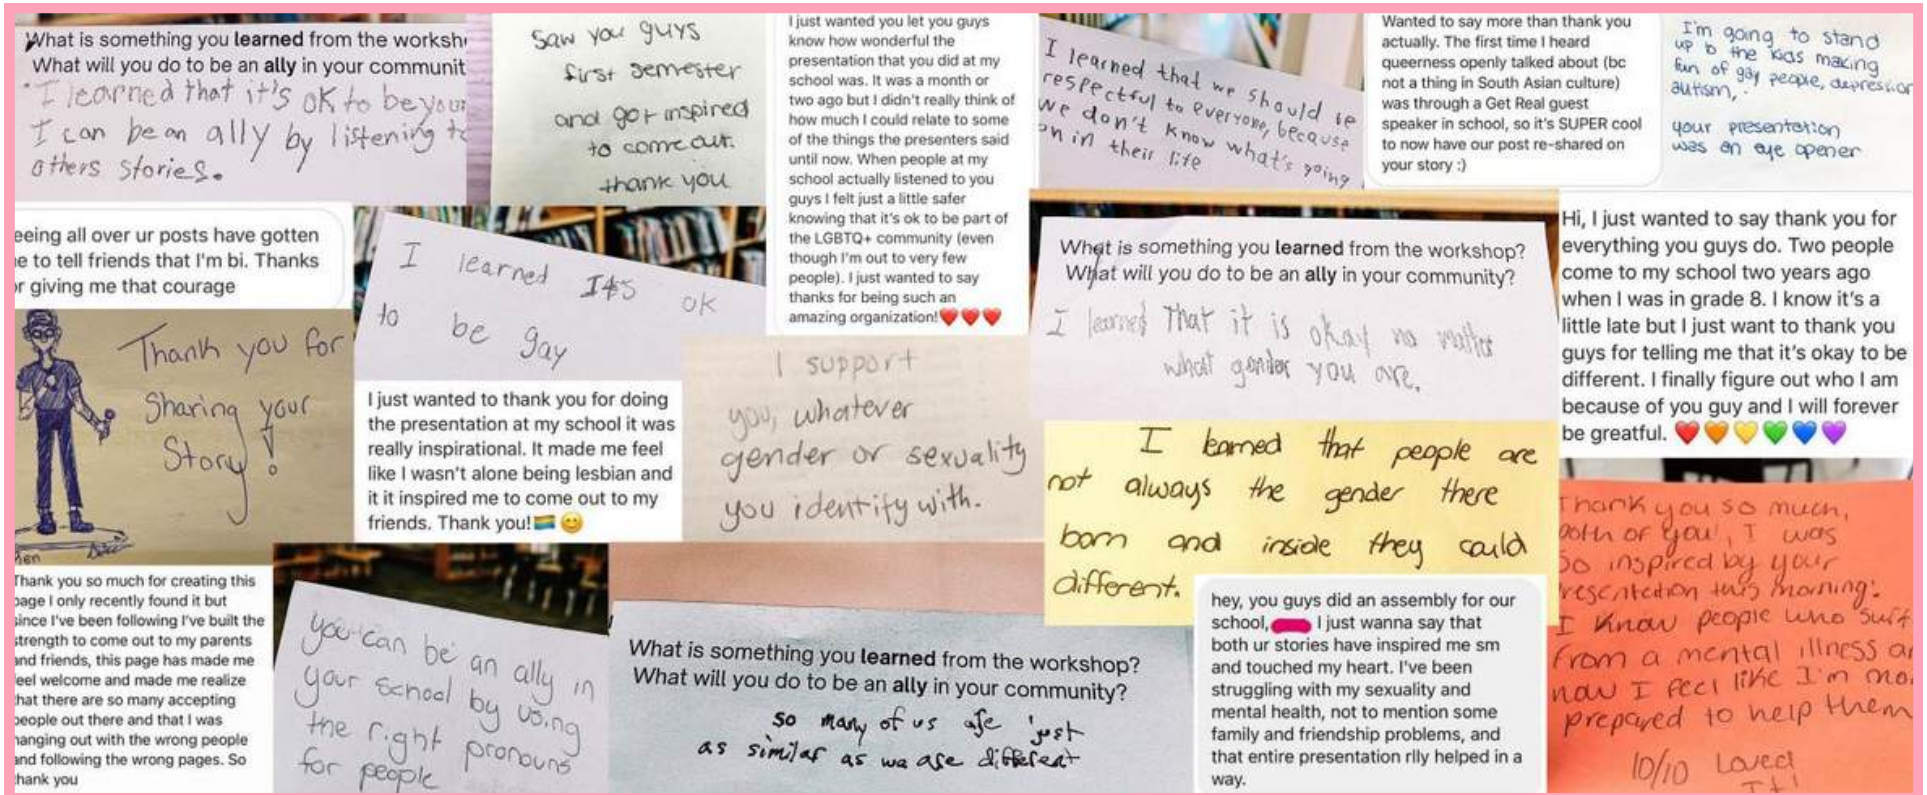 What is something you learned from the worksh
What will you do to be an ally in your communit
I learned that it's ok to be your
I can be an ally by listening to
others stories.
Saw you guys
first semester
and got inspired
to come out.
thank you
I just wanted you let you guys
know how wonderful the
presentation that you did at my
school was. It was a month or
two ago but I didn't really think of
how much I could relate to some
of the things the presenters said
until now. When people at my
school actually listened to you
guys I felt just a little safer
knowing that it's ok to be part of
the LGBTQ+ community (even
though I'm out to very few
people). I just wanted to say
thanks for being such an
amazing organization!❤️❤️❤️
I learned that we should be
respectful to everyone, because
we don't know what's going
on in their life
Wanted to say more than thank you
actually. The first time I heard
queerness openly talked about (bc
not a thing in South Asian culture)
was through a Get Real guest
speaker in school, so it's SUPER cool
to now have our post re-shared on
your story :)
I'm going to stand
up to the kids making
fun of gay people, depression
autism,
your presentation
was an eye opener
eeing all over ur posts have gotten
e to tell friends that I'm bi. Thanks
r giving me that courage
I learned It's ok
to be gay
What is something you learned from the workshop?
What will you do to be an ally in your community?
I learned That it is okay no matter
what gender you are.
Hi, I just wanted to say thank you for
everything you guys do. Two people
come to my school two years ago
when I was in grade 8. I know it's a
little late but I just want to thank you
guys for telling me that it's okay to be
different. I finally figure out who I am
because of you guy and I will forever
be greatful. ❤️🧡💛💚💙💜
Thank you for
Sharing your
Story!
I just wanted to thank you for doing
the presentation at my school it was
really inspirational. It made me feel
like I wasn't alone being lesbian and
it it inspired me to come out to my
friends. Thank you!🏳️‍🌈😊
I support
you, whatever
gender or sexuality
you identify with.
I learned that people are
not always the gender there
born and inside they could
different.
Thank you so much,
both of you, I was
so inspired by your
presentation this morning.
I know people who suff
from a mental illness an
now I feel like I'm mo
prepared to help them
10/10 Loved
It!
Thank you so much for creating this
page I only recently found it but
since I've been following I've built the
strength to come out to my parents
and friends, this page has made me
eel welcome and made me realize
that there are so many accepting
people out there and that I was
hanging out with the wrong people
and following the wrong pages. So
thank you
you can be an ally in
your school by using
the right pronouns
for people
What is something you learned from the workshop?
What will you do to be an ally in your community?
so many of us are just
as similar as we are different
hey, you guys did an assembly for our
school, I just wanna say that
both ur stories have inspired me sm
and touched my heart. I've been
struggling with my sexuality and
mental health, not to mention some
family and friendship problems, and
that entire presentation rlly helped in a
way.